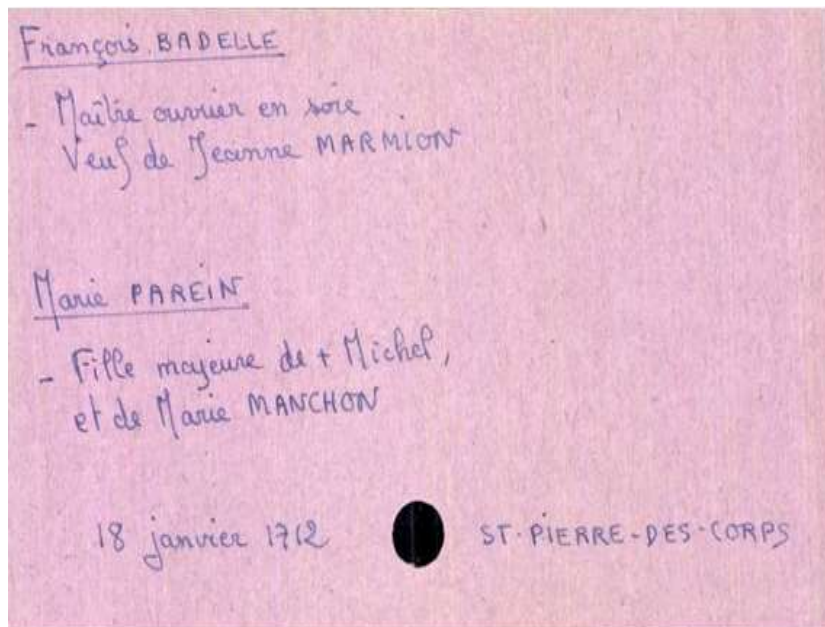 François BADELLE
- Maître ouvrier en soie
Veuf de Jeanne MARMION
Marie PAREIN
- Fille majeure de + Michel,
et de Marie MANCHON
18 janvier 1712 ST-PIERRE-DES-CORPS